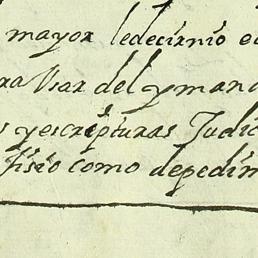 mayor ledecirnio e
ra Usar del y man
s y escripturas Judic
fisio como de pedim